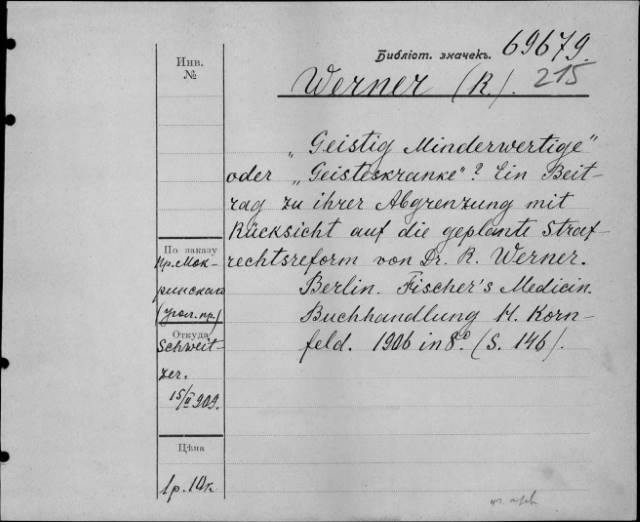 Инв.
№
Библіот. значекъ. 69679.
Werner (R.). 215
„Geistig Minderwertige"
oder „Geisteskranke"? Ein Beit-
rag zu ihrer Abgrenzung mit
Rücksicht auf die geplante Straf-
rechtsreform von Dr. R. Werner.
Berlin. Fischer's Medicin.
Buchhandlung H. Korn-
feld. 1906 in 8º. (S. 146).
По заказу
пр. Мок-
ринскаго
(угол. пр.)
Откуда
Schweit-
zer.
15/II 909.
Цѣна
1 р. 10 к